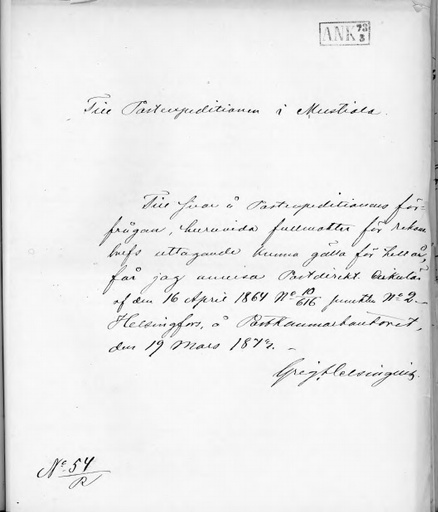 ANK 73/3
Till Postexpeditionen i Mustiala.
Till svar å Postexpeditionens för-
frågan, huruvida fullmakter för rekom
brefs uttagande kunna gälla för helt år,
får jag anvisa Postdirekt. Cirkulär
af den 16 April 1864 No 10/616 punkten No 2.–
Helsingfors, å Postkammarkontoret,
den 19 Mars 1873.–
No 54